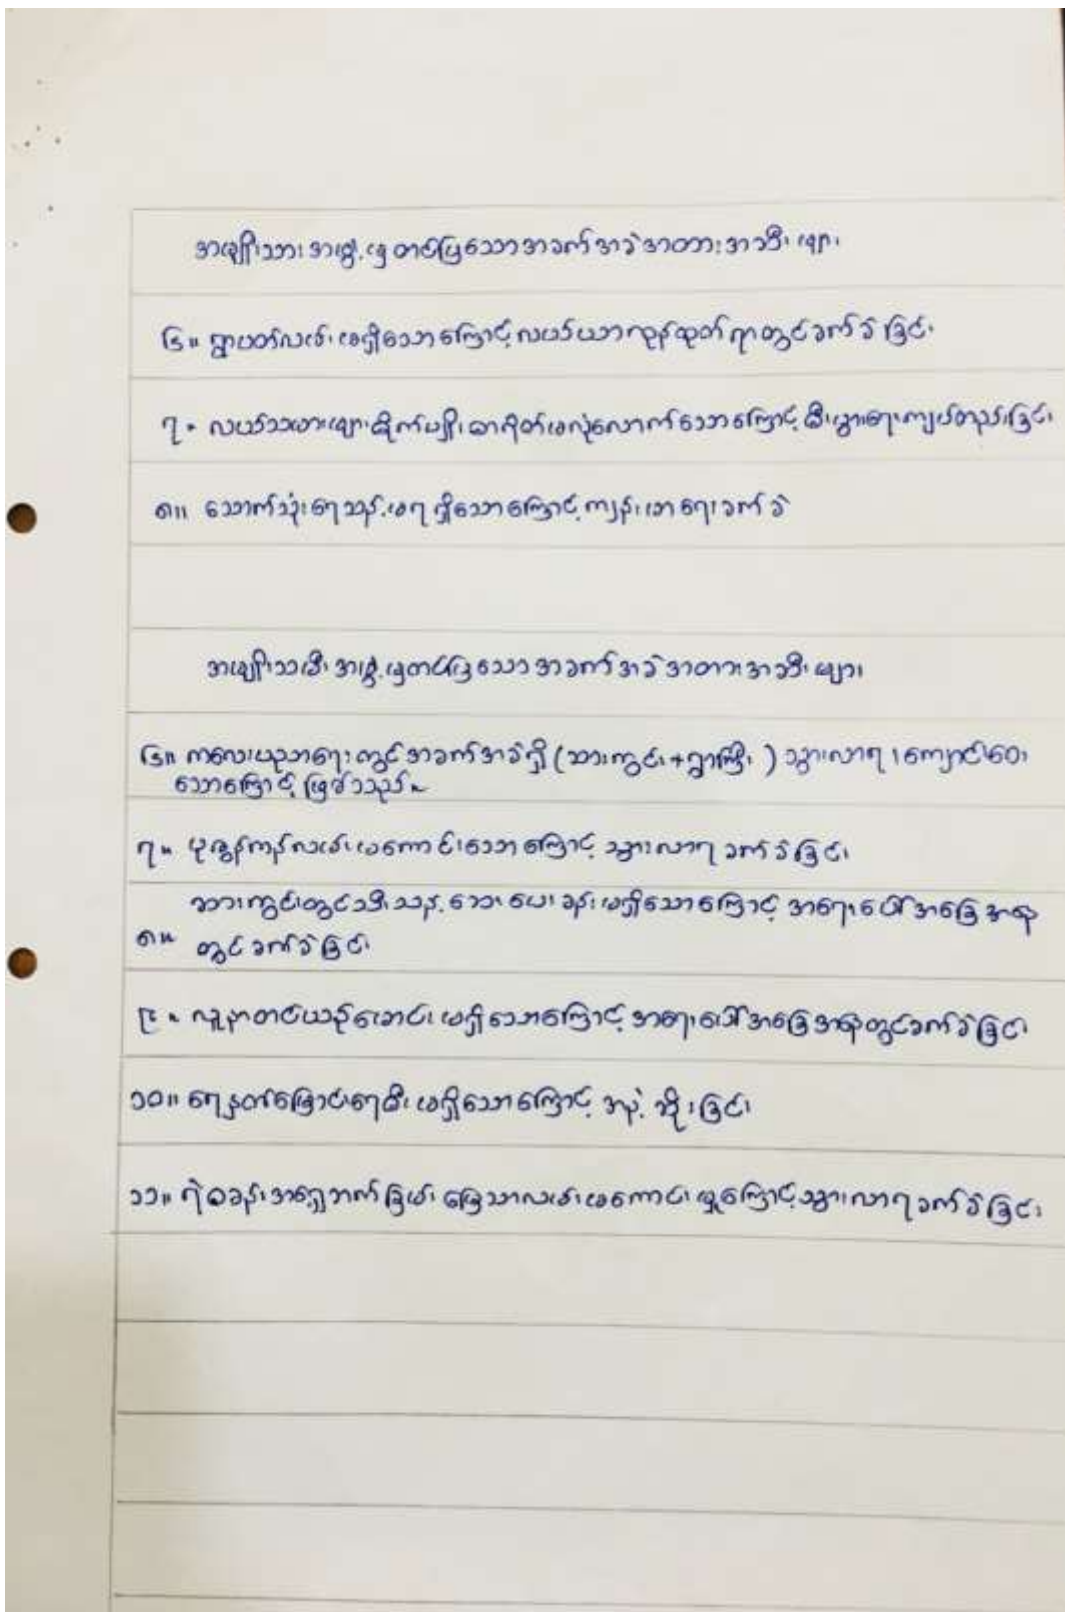 အမျိုးသားအဖွဲ့မှတင်ပြသောအခက်အခဲအတားအဆီးများ
၆။ ရွာပတ်လမ်းမရှိသောကြောင့်လယ်ယာကုန်ထုတ်ရာတွင်ခက်ခဲခြင်း
၇။ လယ်သမားများစိုက်ပျိုးစာရိတ်မလုံလောက်သောကြောင့်စီးပွားရေးကျပ်တည်းခြင်း
၈။ သောက်သုံးရေသန့်မရရှိသောကြောင့်ကျန်းမာရေးခက်ခဲ
အမျိုးသမီးအဖွဲ့မှတင်ပြသောအခက်အခဲအတားအဆီးများ
၆။ ကလေးပညာရေးတွင်အခက်အခဲရှိ (ဆားကွင်း+ရွာကြီး) သွားလာရ ကျောင်းဝေး
သောကြောင့်ဖြစ်သည်။
၇။ ပုဇွန်ကန်လမ်းမကောင်းသောကြောင့်သွားလာရခက်ခဲခြင်း
ဆားကွင်းတွင်သီးသန့်ဆေးပေးခန်းမရှိသောကြောင့်အရေးပေါ်အခြေအနေ
၈။ တွင်ခက်ခဲခြင်း
၉။ လူနာတင်ယာဉ်မောင်းမရှိသောကြောင့်အရေးပေါ်အခြေအနေတွင်ခက်ခဲခြင်း
၁၀။ ရေနုတ်မြောင်းရေစီးမရှိသောကြောင့်အနံ့ဆိုးခြင်း
၁၁။ ရဲစခန်းအရှေ့ဘက်ခြမ်းမြေသာလမ်းမကောင်းမှုကြောင့်သွားလာရခက်ခဲခြင်း